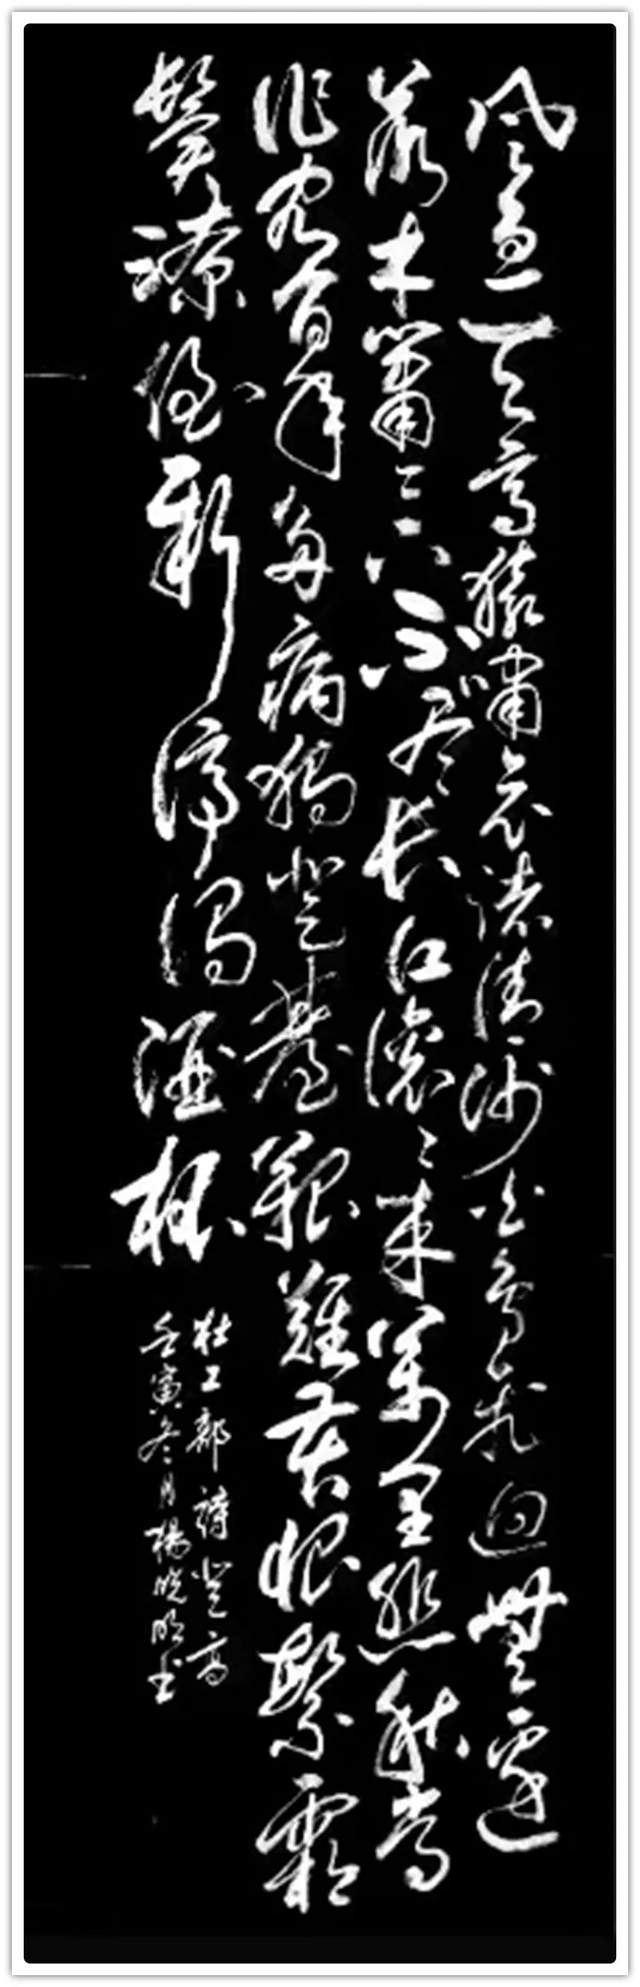 風急天高猿嘯哀渚清沙白鳥飛迴無邊
落木蕭〻下不尽長江滾〻來萬里悲秋常
作客百年多病獨登臺艱難苦恨繁霜
鬢潦倒新停濁酒杯
杜工部詩登高
壬寅冬月楊曉明书